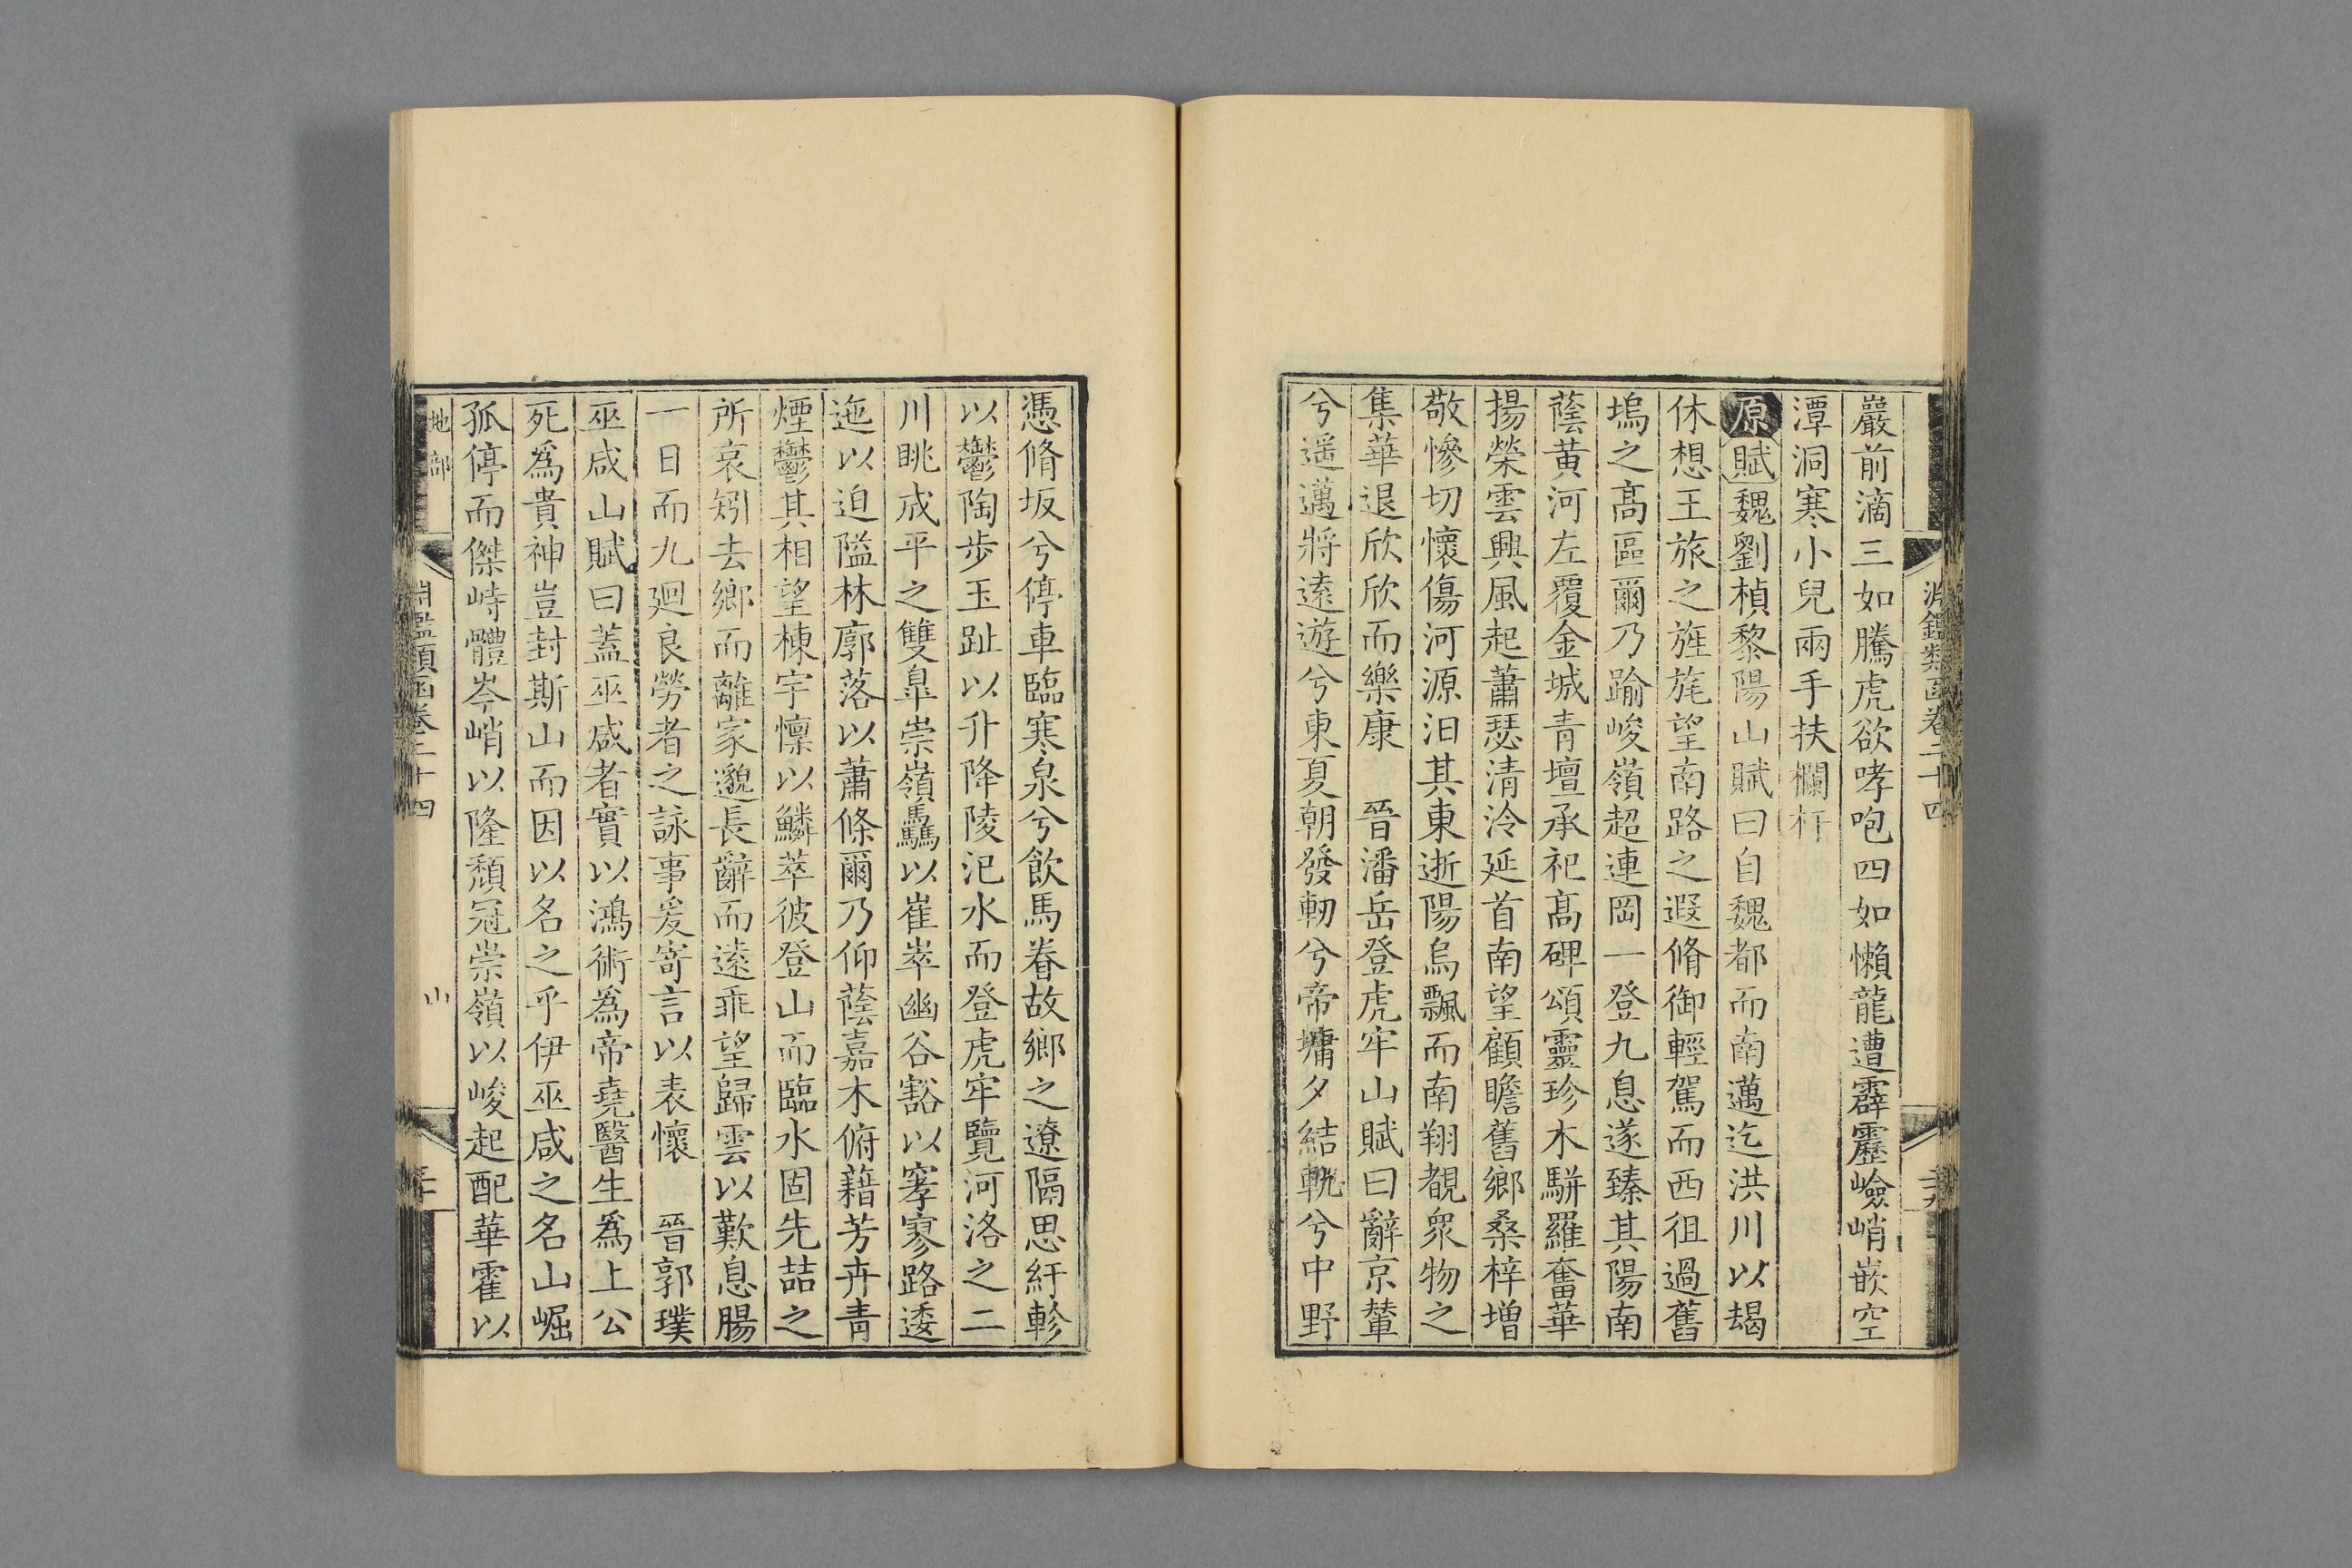 淵鑑類函卷二十四
巖前滴三如騰虎欲哮咆四如懶龍遭霹靂嶮峭嵌空
潭洞寒小兒兩手扶欄杆
原賦魏劉楨黎陽山賦曰自魏都而南邁迄洪川以朅
休想王旅之旌旄望南路之遐脩御輕駕而西徂過舊
塢之高區爾乃踰峻嶺超連岡一登九息遂臻其陽南
蔭黃河左覆金城青壇承祀高碑頌靈珍木駢羅奮華
揚榮雲興風起蕭瑟清泠延首南望顧瞻舊鄉桑梓增
敬慘切懷傷河源汨其東逝陽烏飄而南翔覩眾物之
集華退欣欣而樂康 晉潘岳登虎牢山賦曰辭京輦
兮遥邁將遠遊兮東夏朝發軔兮帝墉夕結軌兮中野
憑脩坂兮停車臨寒泉兮飲馬眷故鄉之遼隔思紆軫
以鬱陶步玉趾以升降陵汜水而登虎牢覽河洛之二
川眺成平之雙臯崇嶺驫以崔崒幽谷豁以窙寥路逶
迤以迫隘林廓落以蕭條爾乃仰蔭嘉木俯藉芳卉青
煙鬱其相望棟宇懍以鱗萃彼登山而臨水固先喆之
所哀矧去鄉而離家邈長辭而遠乖望歸雲以歎息腸
一日而九廻良勞者之詠事爰寄言以表懷 晉郭璞
巫咸山賦曰蓋巫咸者實以鴻術爲帝堯醫生爲上公
死爲貴神豈封斯山而因以名之乎伊巫咸之名山崛
孤停而傑峙體岑峭以隆頹冠崇嶺以峻起配華霍以
地部 淵鑑類函卷二十四 山